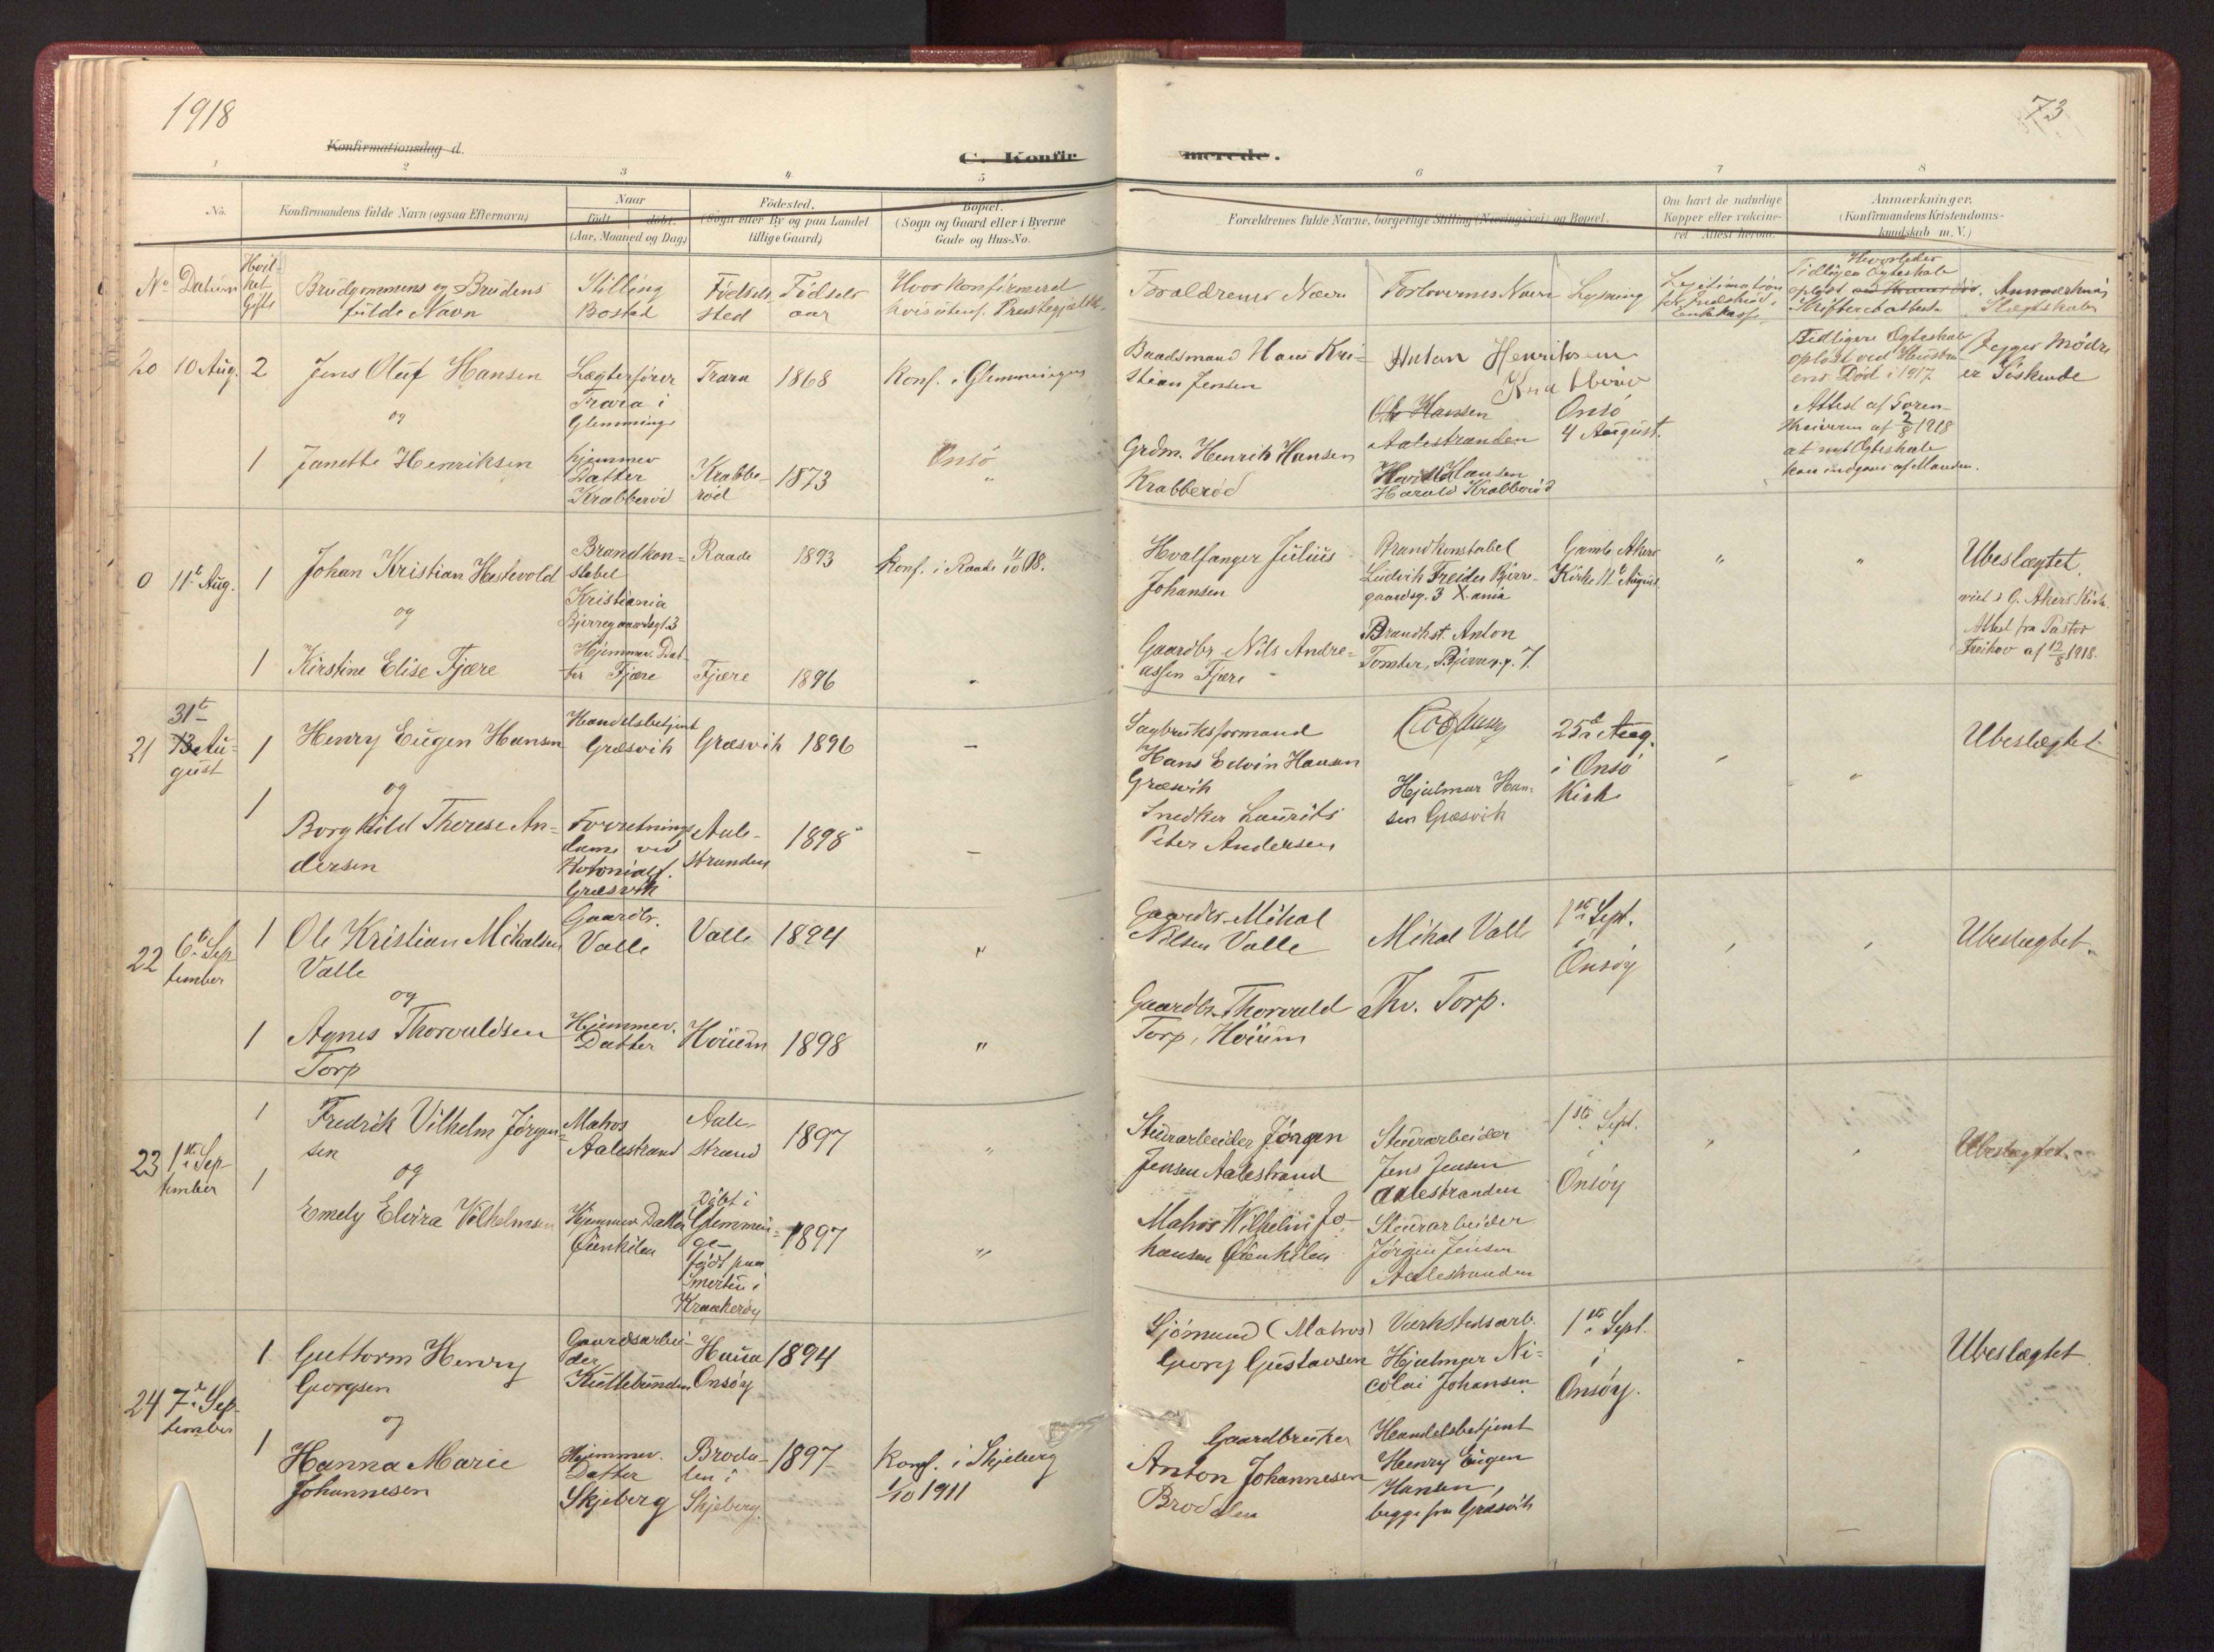 1918
73
Konfirmationsdag d.
C. Konfir
merede.
1 2 3 4 5 6 7 8
No.
Konfirmandens fulde Navn (ogsaa Efternavn)
Naar
født döbt
(Aar, Maaned og Dag)
Födested.
(Sogn eller By og paa Landet
tillige Gaard)
Bopæl.
(Sogn og Gaard eller i Byerne
Gade og Hus-No.
Forældrenes fulde Navne, borgerlige Stilling (Næringsvei) og Bopæl.
Om havt de naturlige
Kopper eller vakcine-
ret Attest herom.
Anmerkninger.
(Konfirmandens Kristendoms-
kundskab m. V.)
No Datum
Hvil-
ket
Gifte
Brudgommens og Brudens
fulde Navn
Stilling
Bosted
Fødsels
sted
Fødsels
aar
Hvor Konfirmerd
hvis utenf. Prestegjeldet
Foraldrenes Navn
Forlovernes Navn
Lysning
Legitimation
for Indskud i
Enkekasse
Hvorledes
Tidligere Egteskab
opløst
Skifteretsattest
Slegtskab
20 10 Aug. 2 Jens Oluf Hansen
Lægterfører
Trara i
Glemminge
Trara 1868 Konf. i Glemminge
Baadsmand Hans Kri-
stian Jensen
Anton Henriksen
Krabberöd
Ole Hansen
Aalestranden
Onsö
4 August.
Tidligere Egteskab
opløst ved Hustru-
ens Död i 1917
Attest af Foren-
Skiverens af 2/8 1918
at nyt Egteskab
kan indgaaes af Manden.
Begges Mödre
er Söskende
og
1 Janette Henriksen
hjemmev
Datter
Krabberöd
Krabbe-
röd
1873 Onsö
"
Grdm. Henrik Hansen
Krabberöd
Harald Hansen
Harald Krabberöd
0 11te Aug. 1 Johan Kristian Hastevold
Brandkon-
stabel
Kristiania
Bjerregaardsgt. 3
Raade 1893 Konf. i Raade 11/10 08.
Hvalfanger Julius
Johansen
Brandkonstabel
Ludvik Freider Bjerre-
gaardsg. 3 X.ania
Gamle Akers
Kirke 11te August
" "
Ubeslægtet.
viet i G. Akers Kirke
Attest fra Pastor
af 12/8 1918.
og
1 Kirstine Elise Fjære
Hjemmev. Dat-
ter Fjære
Fjære 1896 "
Gaardbr Nils Andre-
assen Fjære
Brandkst. Anton
Tomter, Bjerreg. 7.
21
31te
13 Au-
gust
1 Henry Eugen Hansen
Handelsbetjent
Græsvik
Græsvik 1896 –
Sagbruksformand
Hans Edvin Hansen
Græsvik
25te Aug.
i Onsö
Kirk
" "
Ubeslægtet
og
1 Borghild Therese An-
dersen
Forretnings
dame ved
Kolonialf.
Græsvik
Aale-
stranden
1898 –
Snedker Laurits
Peter Andersen
Hjalmar Han-
sen Græsvik
22
6te Sep
tember
1 Ole Kristian Mikalsen
Valle
Gaardbr.
Valle
Valle 1894 "
Gaardbr. Mikal
Nilsen Valle
Mikal Valle
1ste Sept.
i
Onsöy
" "
Ubeslægtet.
og
1 Agnes Thorvaldsen
Torp
Hjemmev.
Datter
Höium 1898 "
Gaardbr. Thorvald
Torp, Höium
Thv. Torp.
23
1ste Sep
tember
1 Fredrik Vilhelm Jörgen-
sen
Matros
Aalestrand
Aale-
strand
1897 "
Stuerarbeider Jörgen
Jensen Aalestrand
Stuerarbeider
Jens Jensen
Aalestranden
1ste Sept.
i
Onsöy
" "
Ubeslægtet.
og
1 Emely Elvira Vilhelmsen
Hjemmev Datter
Öienkilen
Döbt i
Glemmin-
ge
født paa
Smertu i
Kraakeröy
1897 "
Matros Wilhelm Jo-
hansen Öienkilen
Stuerarbeider
Jörgen Jensen
Aalestranden
24
7de Sep-
tember
1 Guttorm Henry
Georgsen
Gaardsarbei-
der
Kuttebunden
Hauga
Onsöy
1894
Sjömand (Matros)
Georg Gustavsen
Værkstedsarb.
Hjalmar Ni-
colai Johansen
1ste Sept.
i
Onsöy.
" "
Ubeslægtet
og
1 Hanna Marie
Johannesen
Hjemmev.
Datter
Skjeberg
Broda-
len i
Skjeberg.
1897 Konf. i Skjeberg
1/10 1911
Gaardbruker
Anton Johannesen
Brodalen
Handelsbetjent
Henry Eugen
Hansen,
begge fra Græsvik